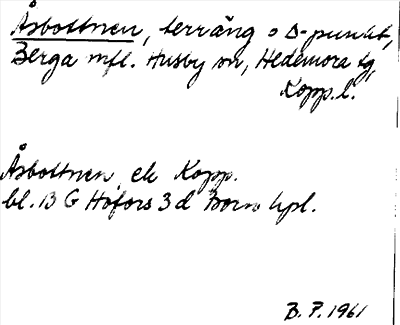 Åsbottnen, terräng o Δ-punkt,
Berga mfl. Husby sn, Hedemora tg,
Kopp. l.
Åsbottnen, ek Kopp.
bl. 13 G Hofors 3 d
B. P. 1961